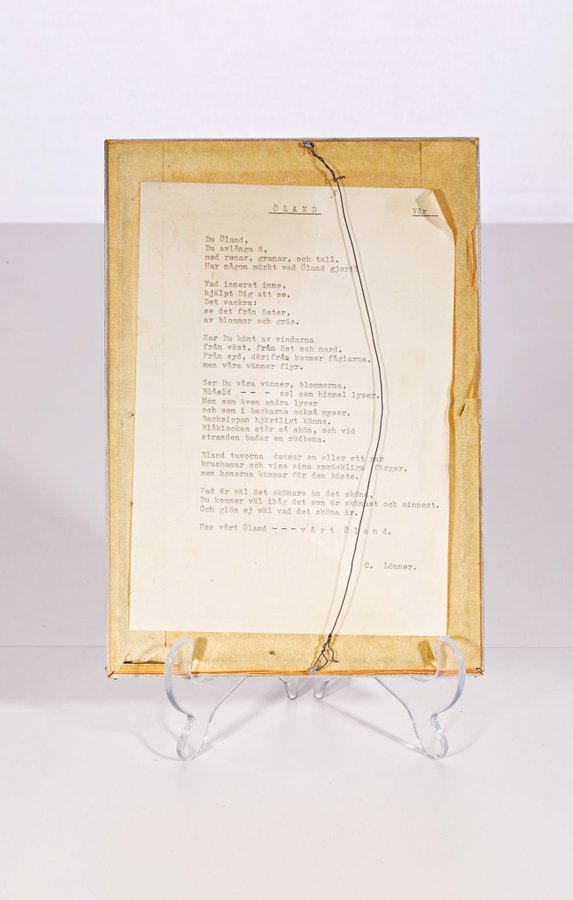 ÖLAND Vår
Du Öland,
Du avlånga ö,
med renar, granar, och tall.
Har någom märkt vad Öland gjort?
Vad innerst inne,
hjälpt Dig att se.
Det vackra:
se det från öster,
av blommor och gräs.
Har Du känt av vindarna
från väst, från öst och nord.
Från syd, därifrån kommer fåglarna,
men våra vänner flyr.
Ser Du våra vänner, blommorna,
Blåeld --- sol som himmel lyser.
Men som även andra lyser
och som i backarna också myser.
Backsippan hjärtligt känns.
Blåklockan står så skön, och vid
stranden badar en rödbena.
Bland tuvorna dansar en eller ett par
brushanar och visa sina spräckliga färger,
men honorna kämpar för den bäste.
Vad är väl det skönare än det sköna,
Du kommer väl ihåg det som är skönast och minnest.
Och glöm ej väl vad det sköna är.
Hos vårt Öland --- vårt Öland.
G. Lönner.